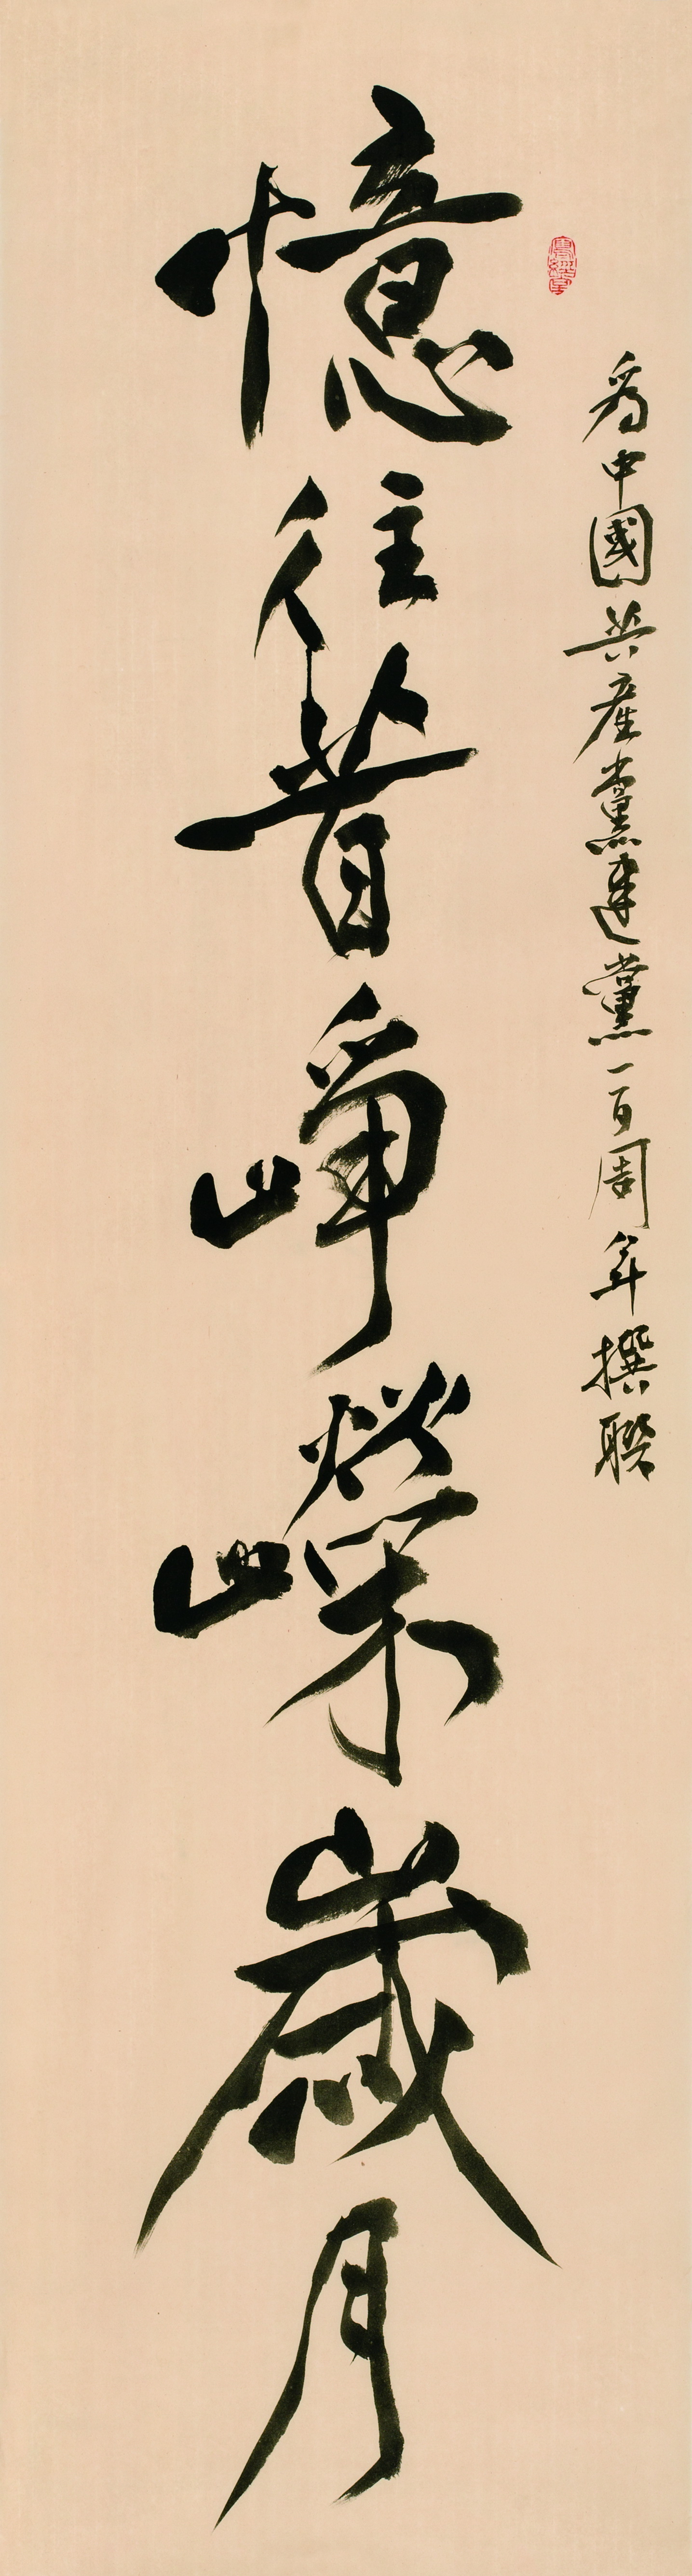 為中國共產黨建黨一百周年撰聯
憶往昔崢嶸歲月